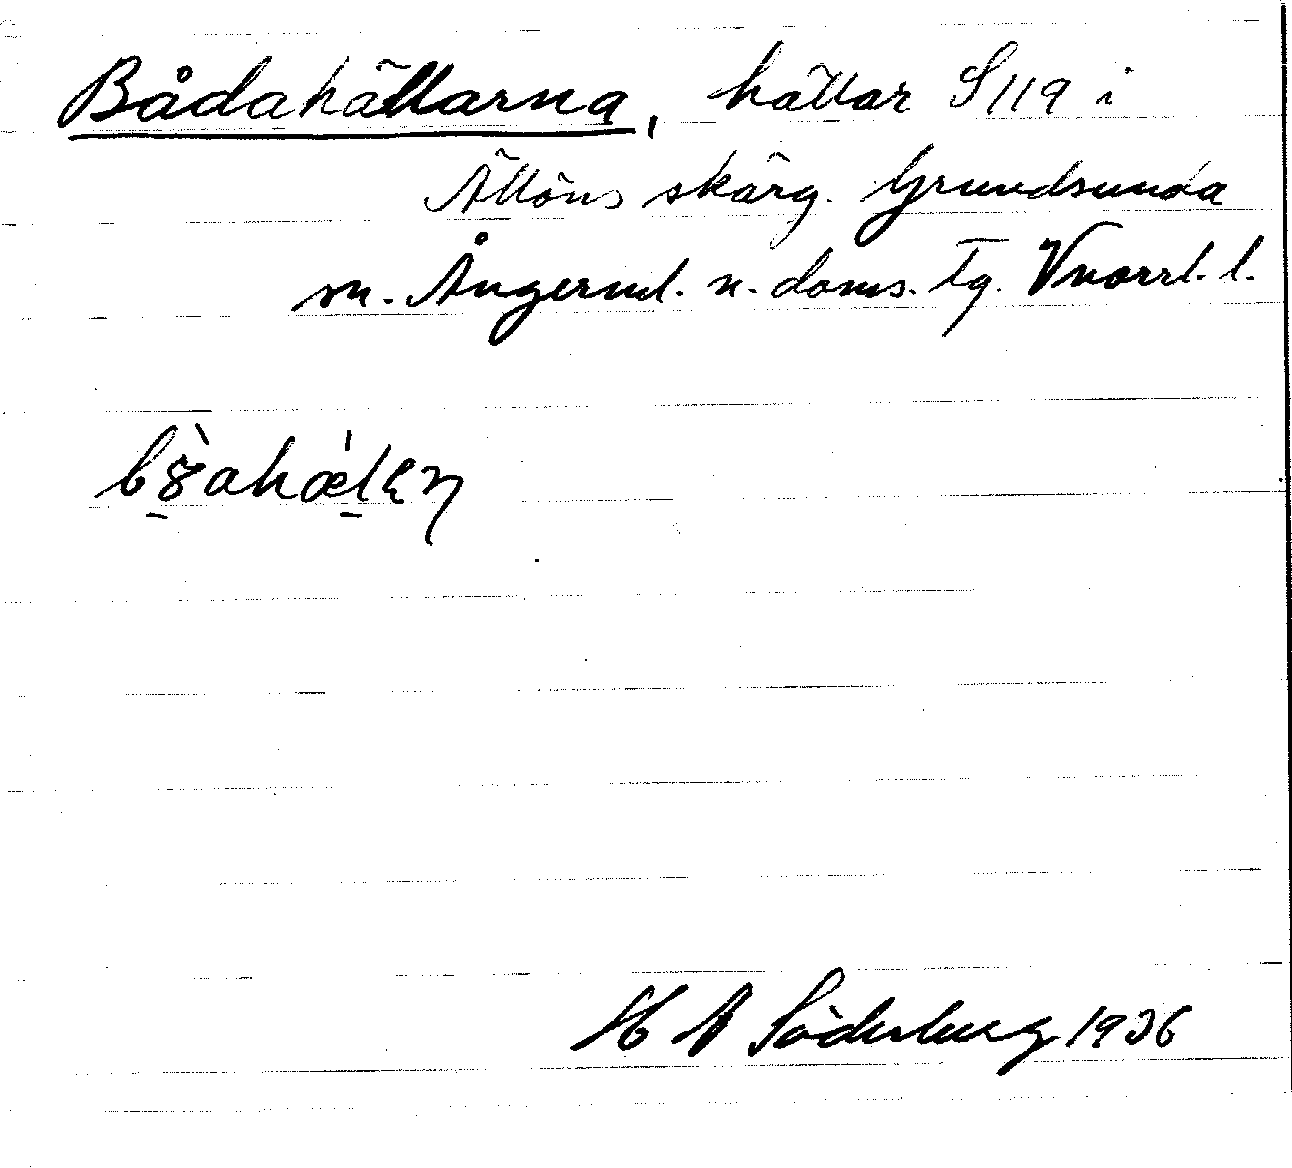 Bådahällarna, hällar S 119 i
Ällöns skärg. Grundsunda
sn. Ångerml. n. doms. tg. Vnorrl. l.
H N Söderberg 1936